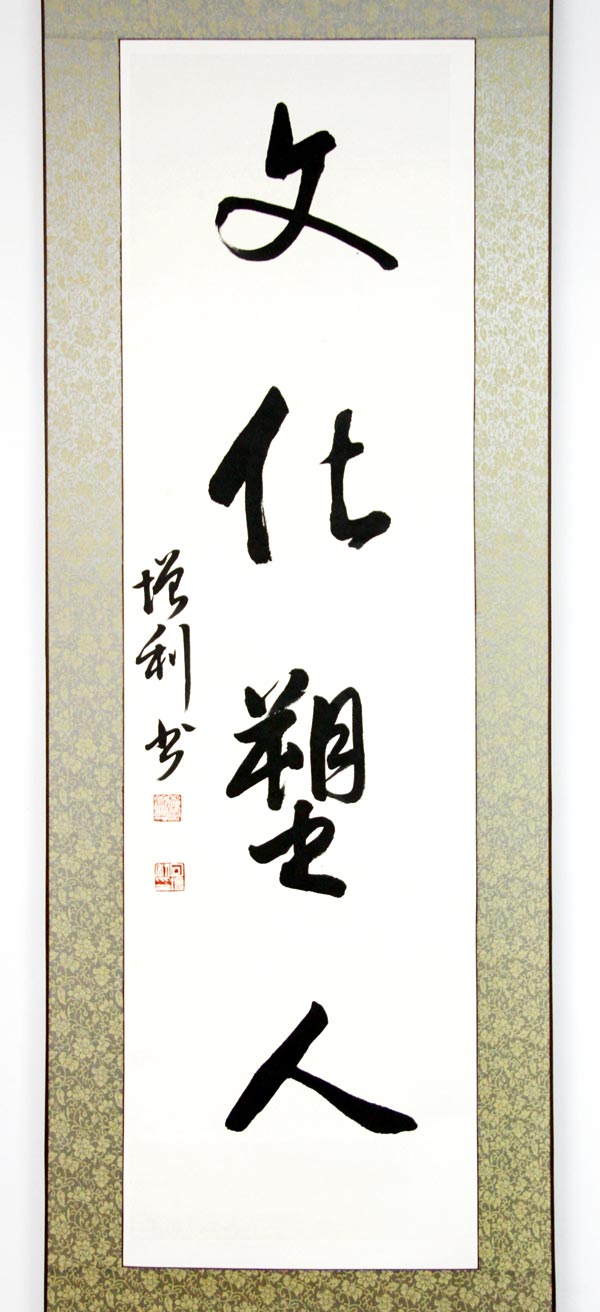 文化塑人
增利书